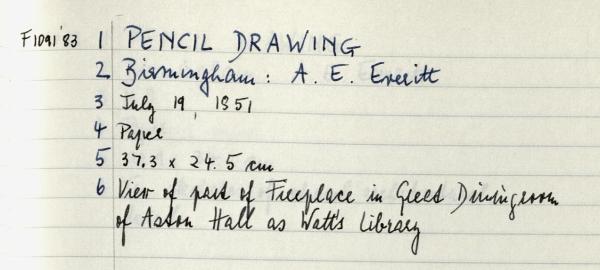 F1091'83 1 PENCIL DRAWING
2 Birmingham: A. E. Everitt
3 July 19, 1851
4 Paper
5 37.3 x 24.5 cm
6 View of part of Fireplace in Great Diningroom
of Aston Hall as Watt's Library